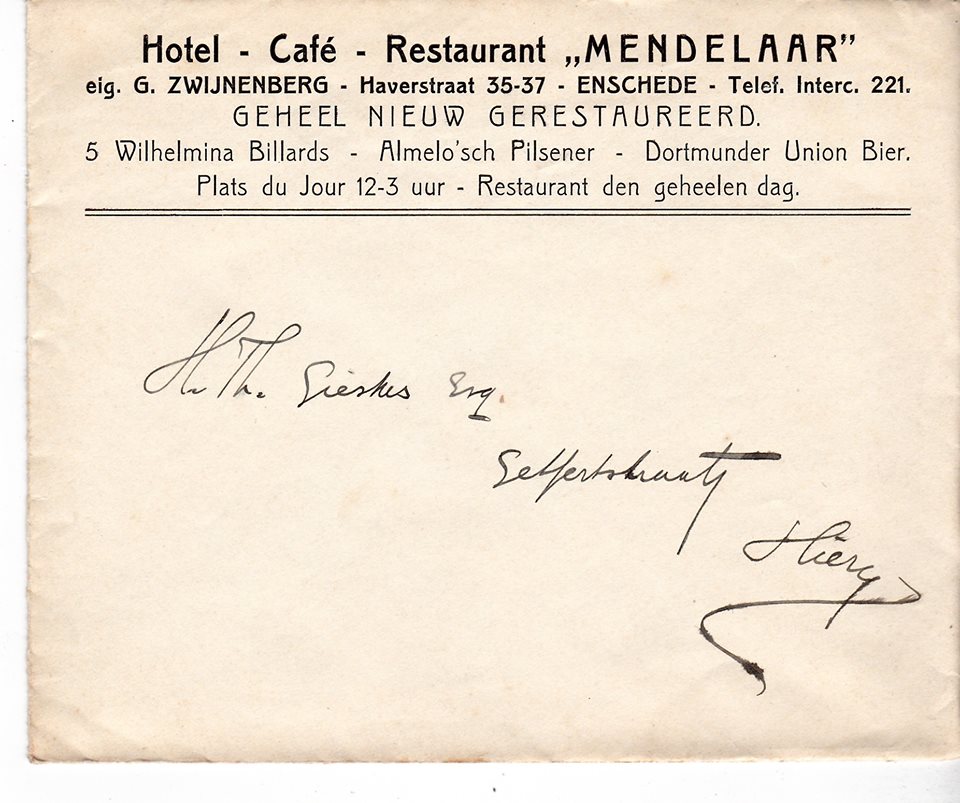 Hotel - Café - Restaurant „MENDELAAR”
eig. G. ZWIJNENBERG - Haverstraat 35-37 - ENSCHEDE - Telef. Interc. 221.
GEHEEL NIEUW GERESTAUREERD.
5 Wilhelmina Billards - Almelo'sch Pilsener - Dortmunder Union Bier.
Plats du Jour 12-3 uur - Restaurant den geheelen dag.
H. Th. Gieskes Esq.
Getfertstraat
Hier